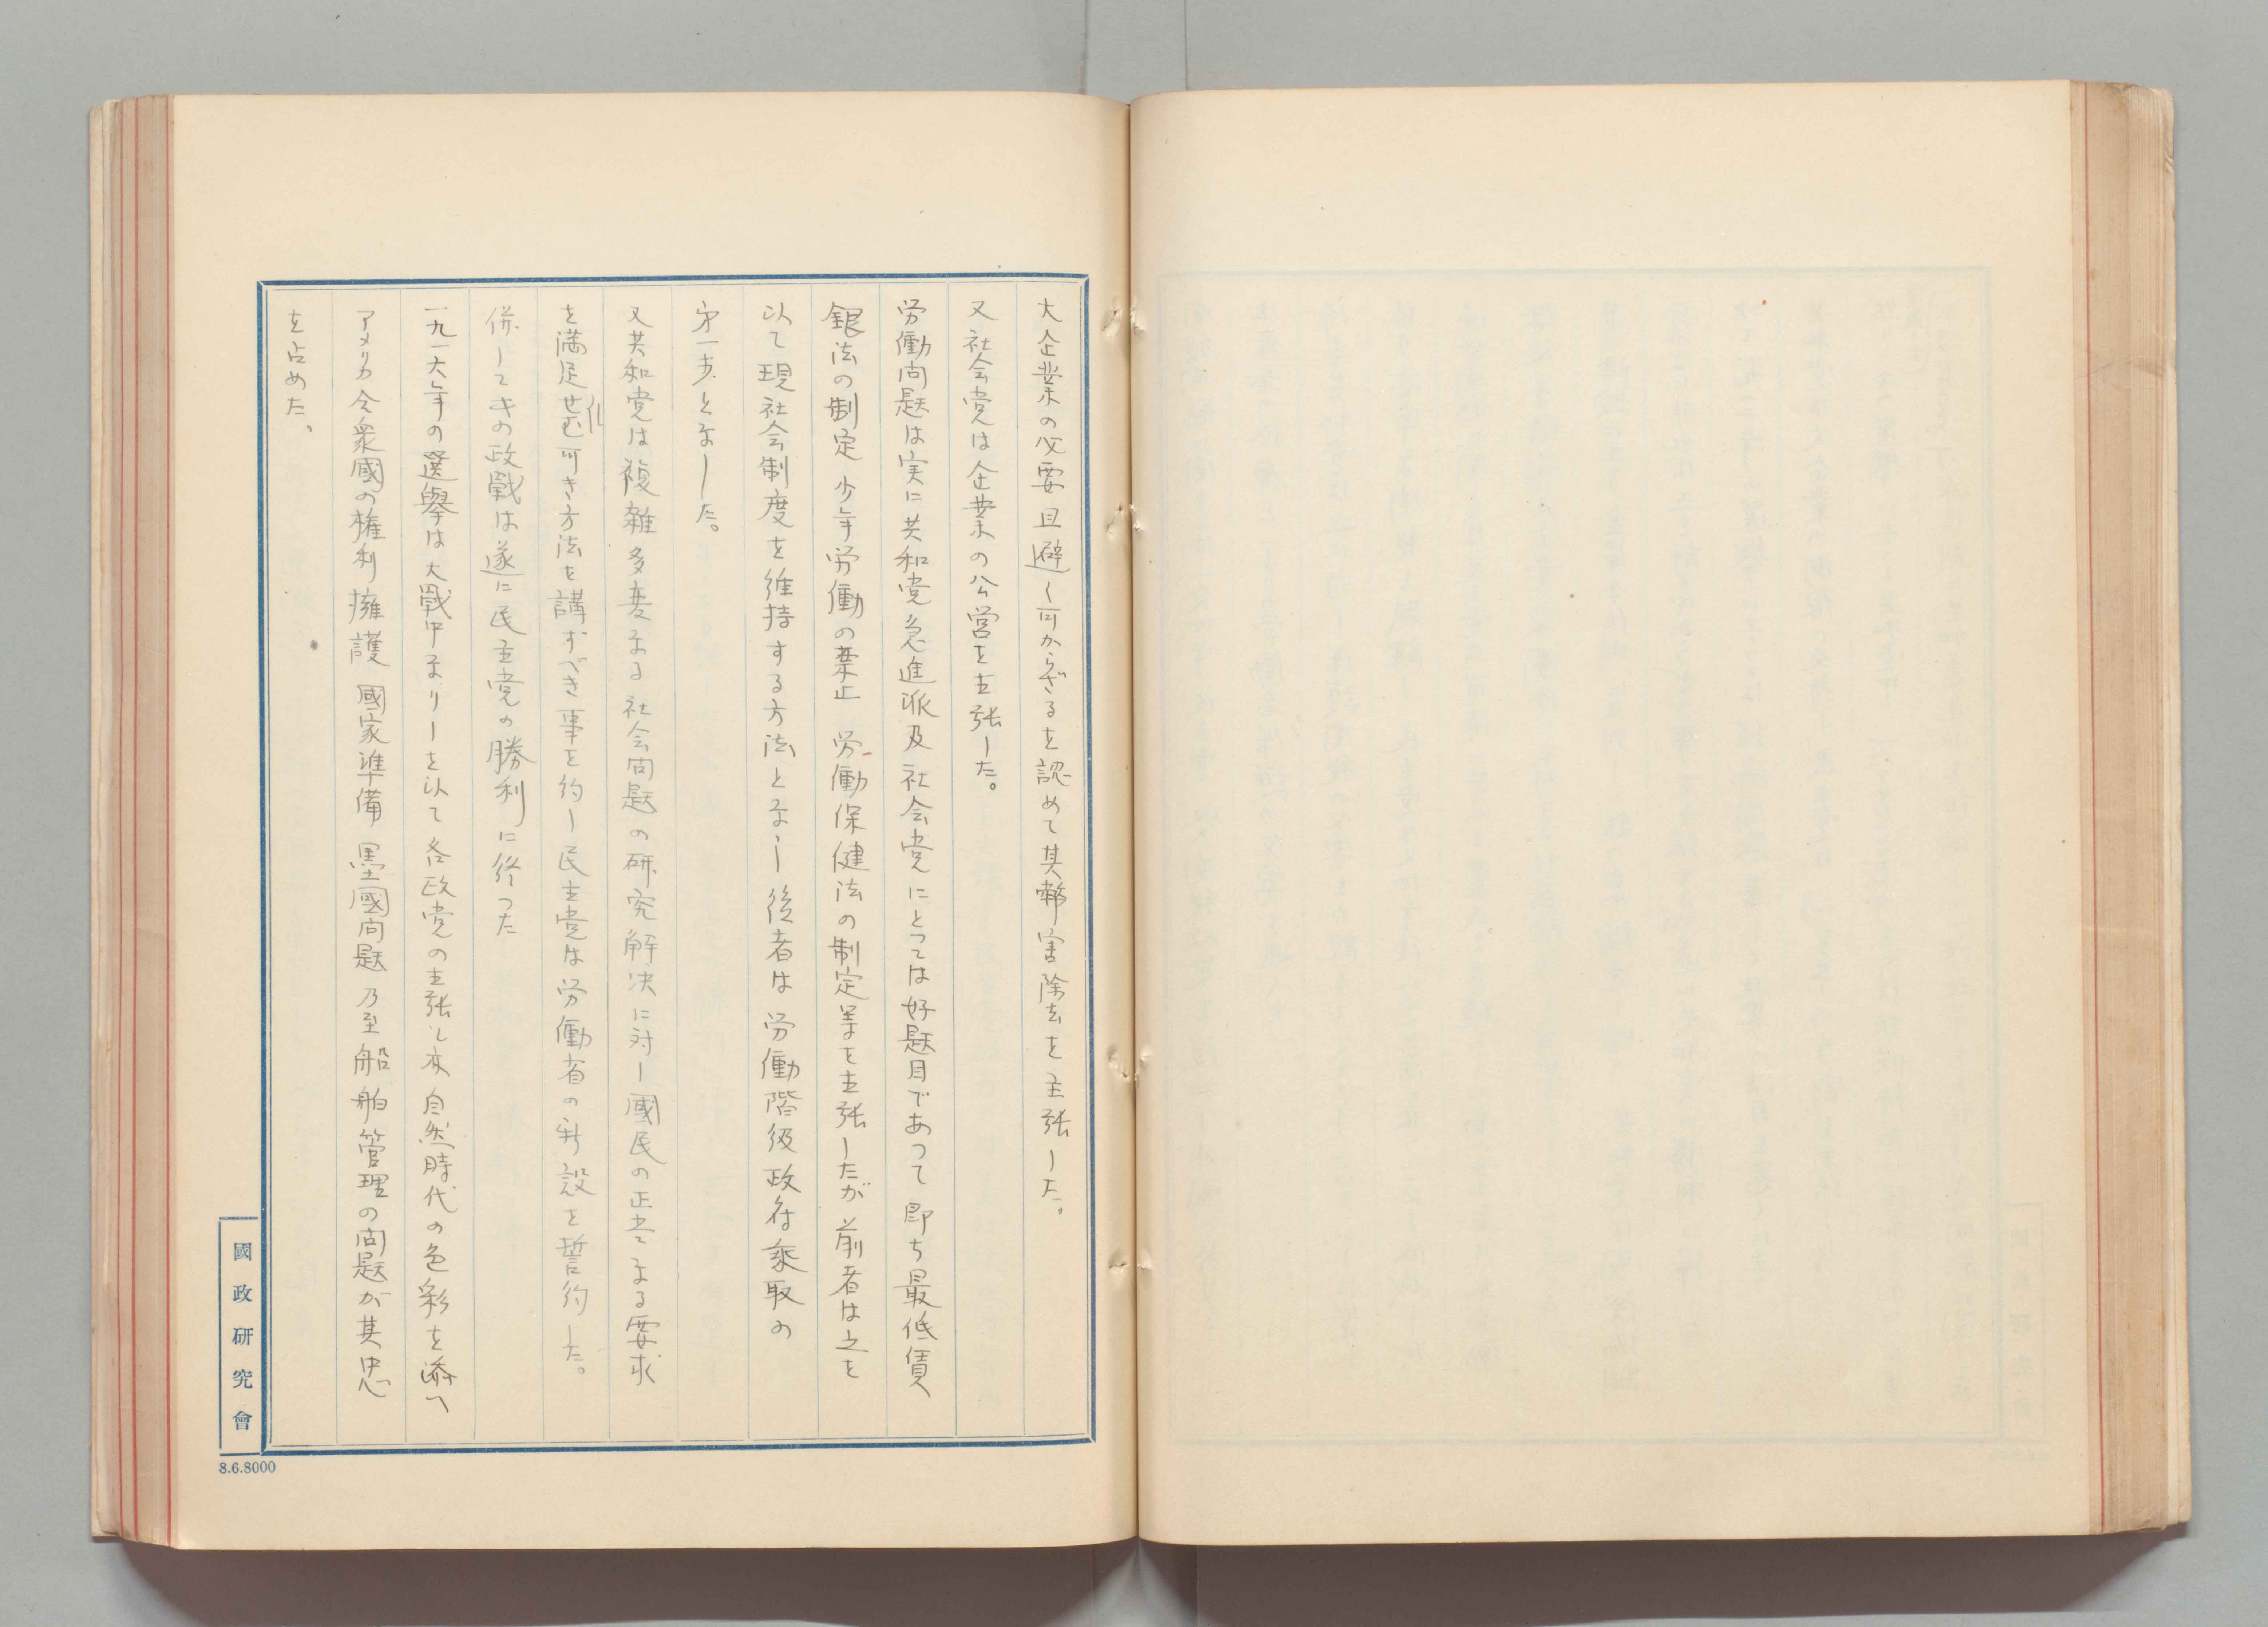 大企業の必要且避く可からざるを認めて其弊害除去を主張した。
又社会党は企業の公営を主張した。
労働問題は実に共和党急進派及社会党にとつては好題目であつて即ち最低賃
銀法の制定 少年労働の禁止 労働保健法の制定等を主張したが前者は之を
以て現社会制度を維持する方法となし後者は労働階級政府乗取の
第一歩となした。
又共和党は複雑多変なる社会問題の研究解決に対し國民の正当なる要求
を満足せむ可き方法を講ずべき事を約し民主党は労働省の新設を誓約した。
併してその政戰は遂に民主党の勝利に終つた
一九一六年の選挙は大戰中なりしを以て各政党の主張も亦自然時代の色彩を添へ
アメリカ合衆國の権利擁護 國家準備 墨國問題 乃至船舶管理の問題が其中心
を占めた。
國政研究會
8.6.8000